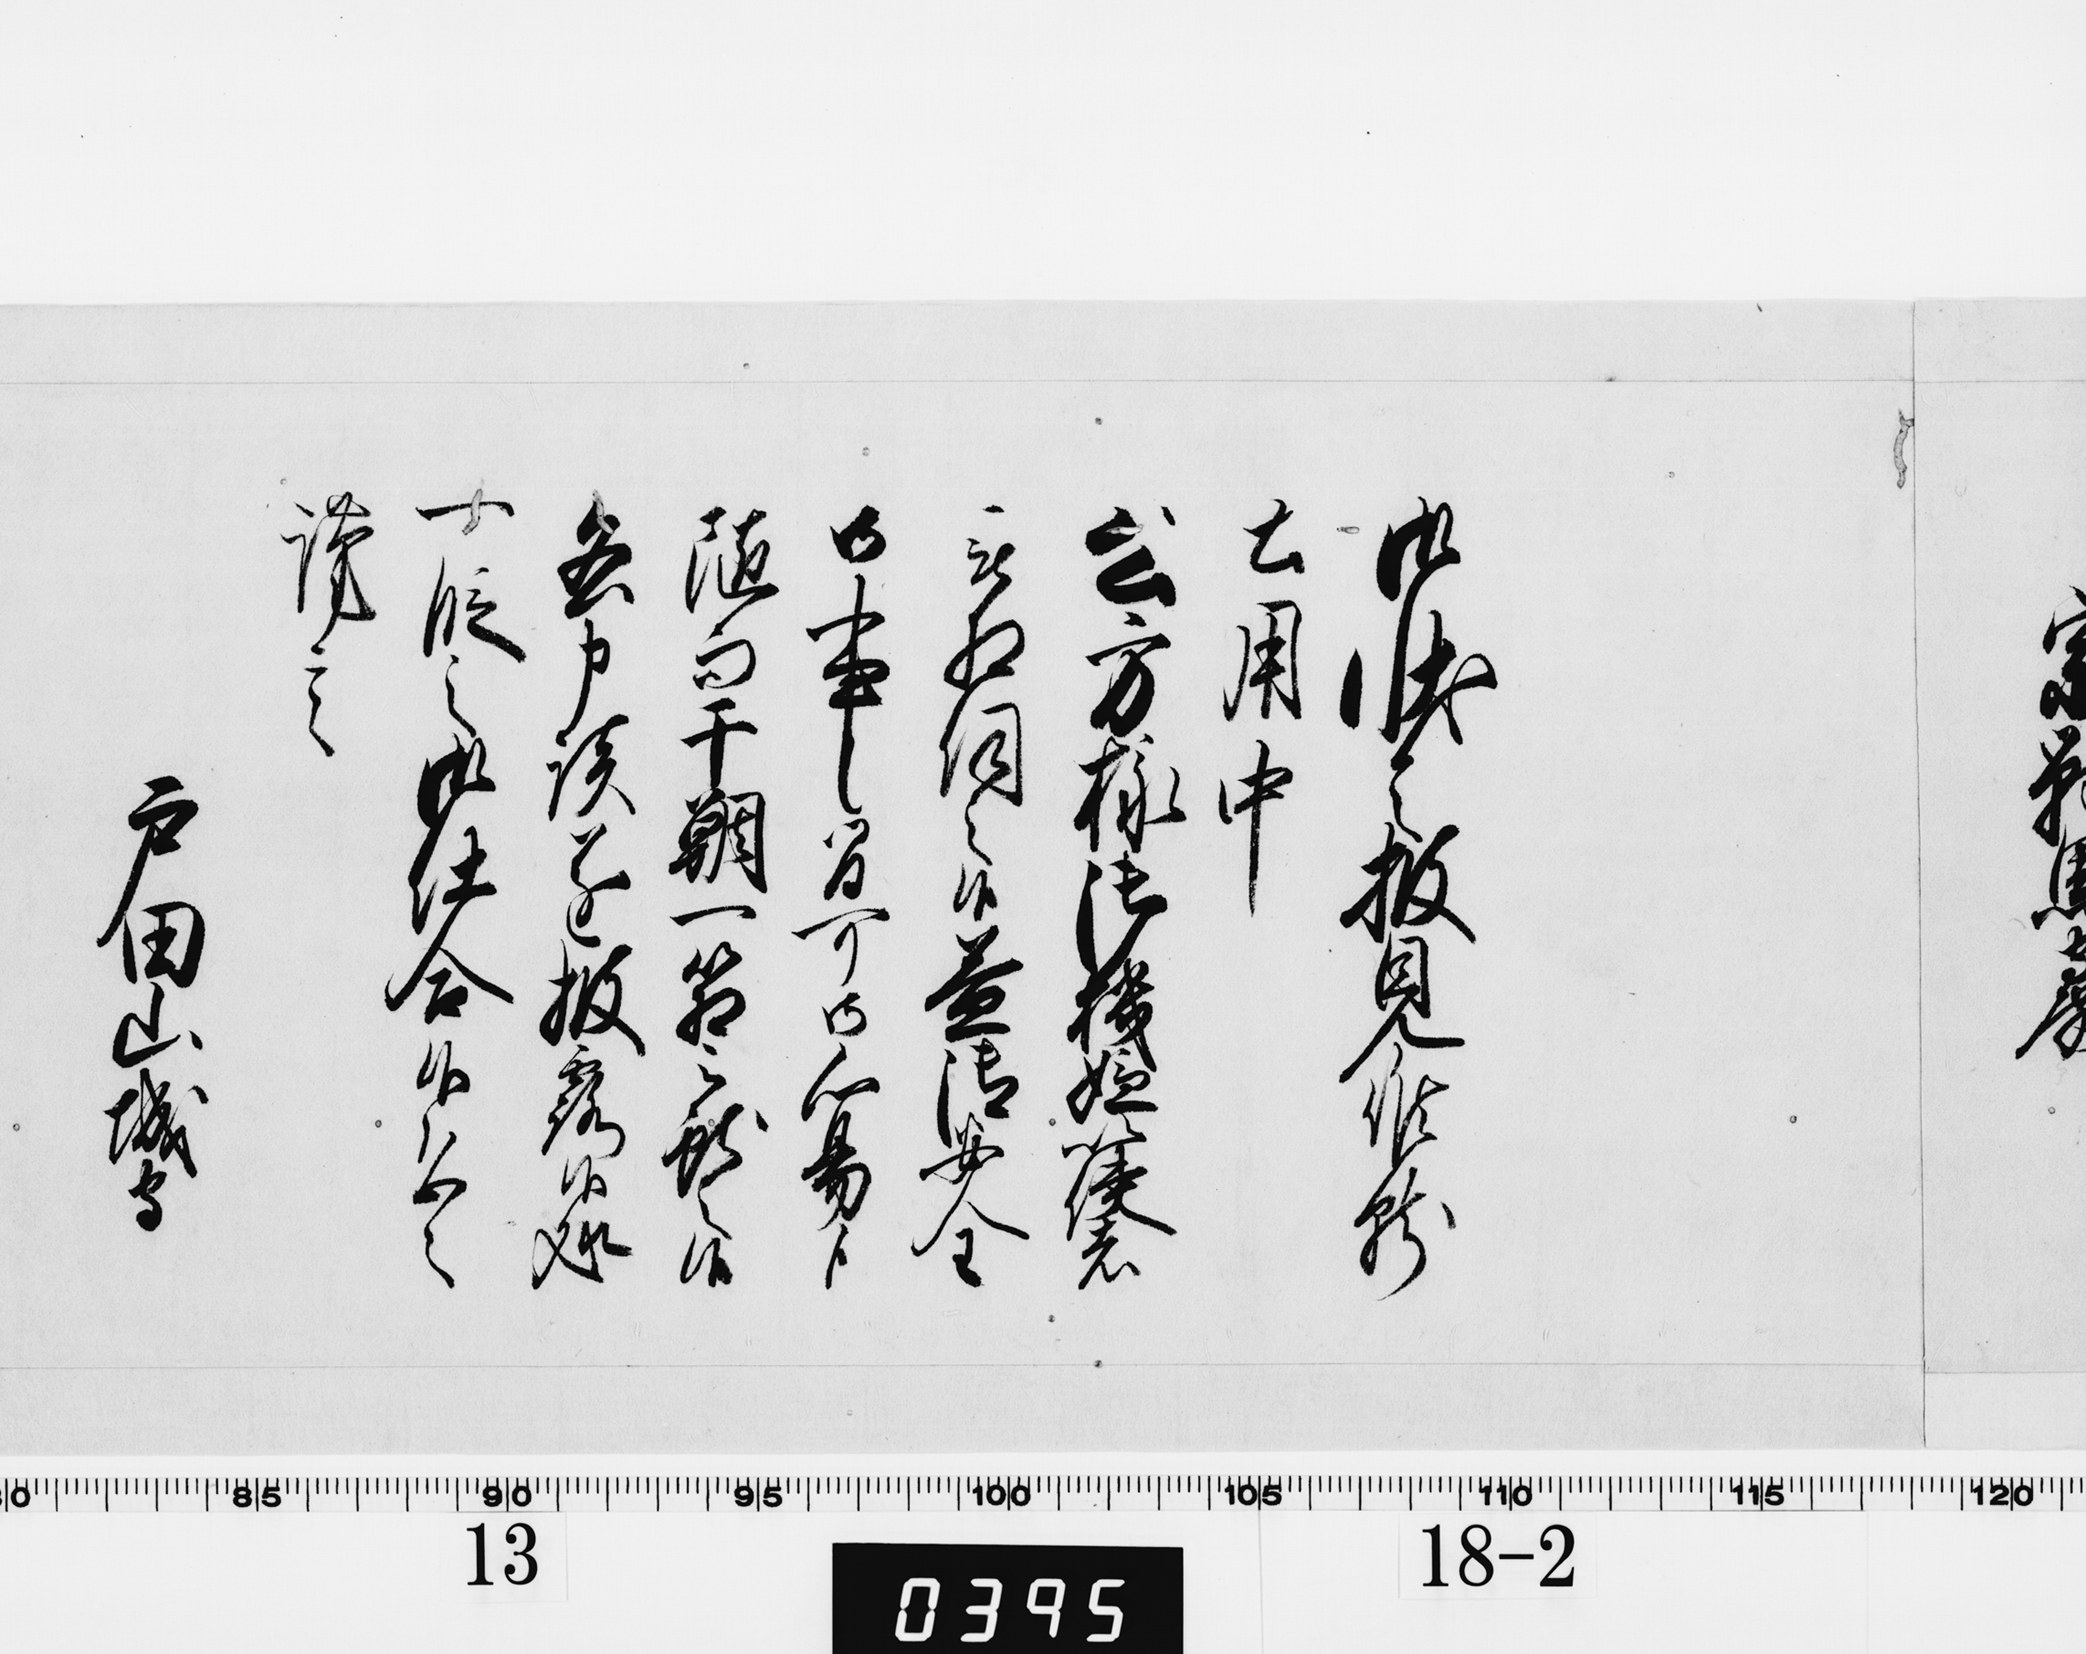 御状令披見候就
土用中
公方様御機嫌
被相伺之候益御安全
御事候間可御心易候
随而干鯛一箱被献之候
各申談遂披露候處
一段之御仕合候恐々
謹言
戸田山城守
13
18-2
0395
80 85 90 95 100 105 110 115 120